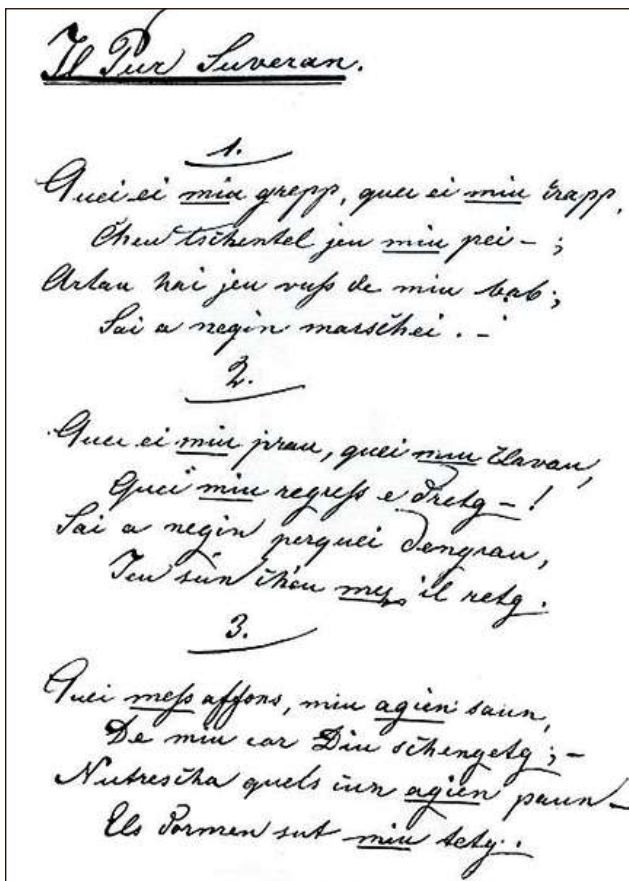 Il Pur Suveran.
1.
Quei ei miu grepp, quei ei miu crapp,
Cheu tschentel jeu miu pei – ;
Artau hai jeu vuß de miu bab;
Sai a negin marschei. –
2.
Quei ei miu prau, quei miu clavau,
Quei miu regreß e dretg – !
Sai a negin perquei dengrau,
Jeu sùn cheu mez il retg.
3.
Quei meß affons, miu agien saun,
De miu car Diu schengetg ; –
Nutrescha quels cun agien paun –
Els dormen sut miu tetg.